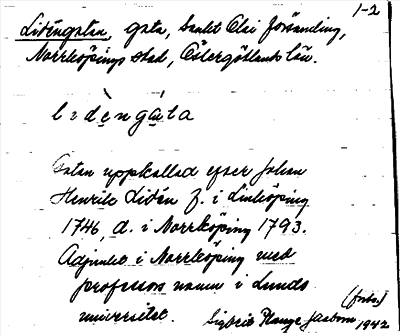 1-2
Lidéngatan, gata, Sankt Olai församling,
Norrköpings stad, Östergötlands län.
lìdèngáta
Gatan uppkallad efter Johan
Henrik Lidén f. i Linköping
1746, d. i Norrköping 1793.
Adjunkt i Norrköping med
professors namn i Lunds
universitet. (forts.)
Sigbrit Plange Jacobson 1942